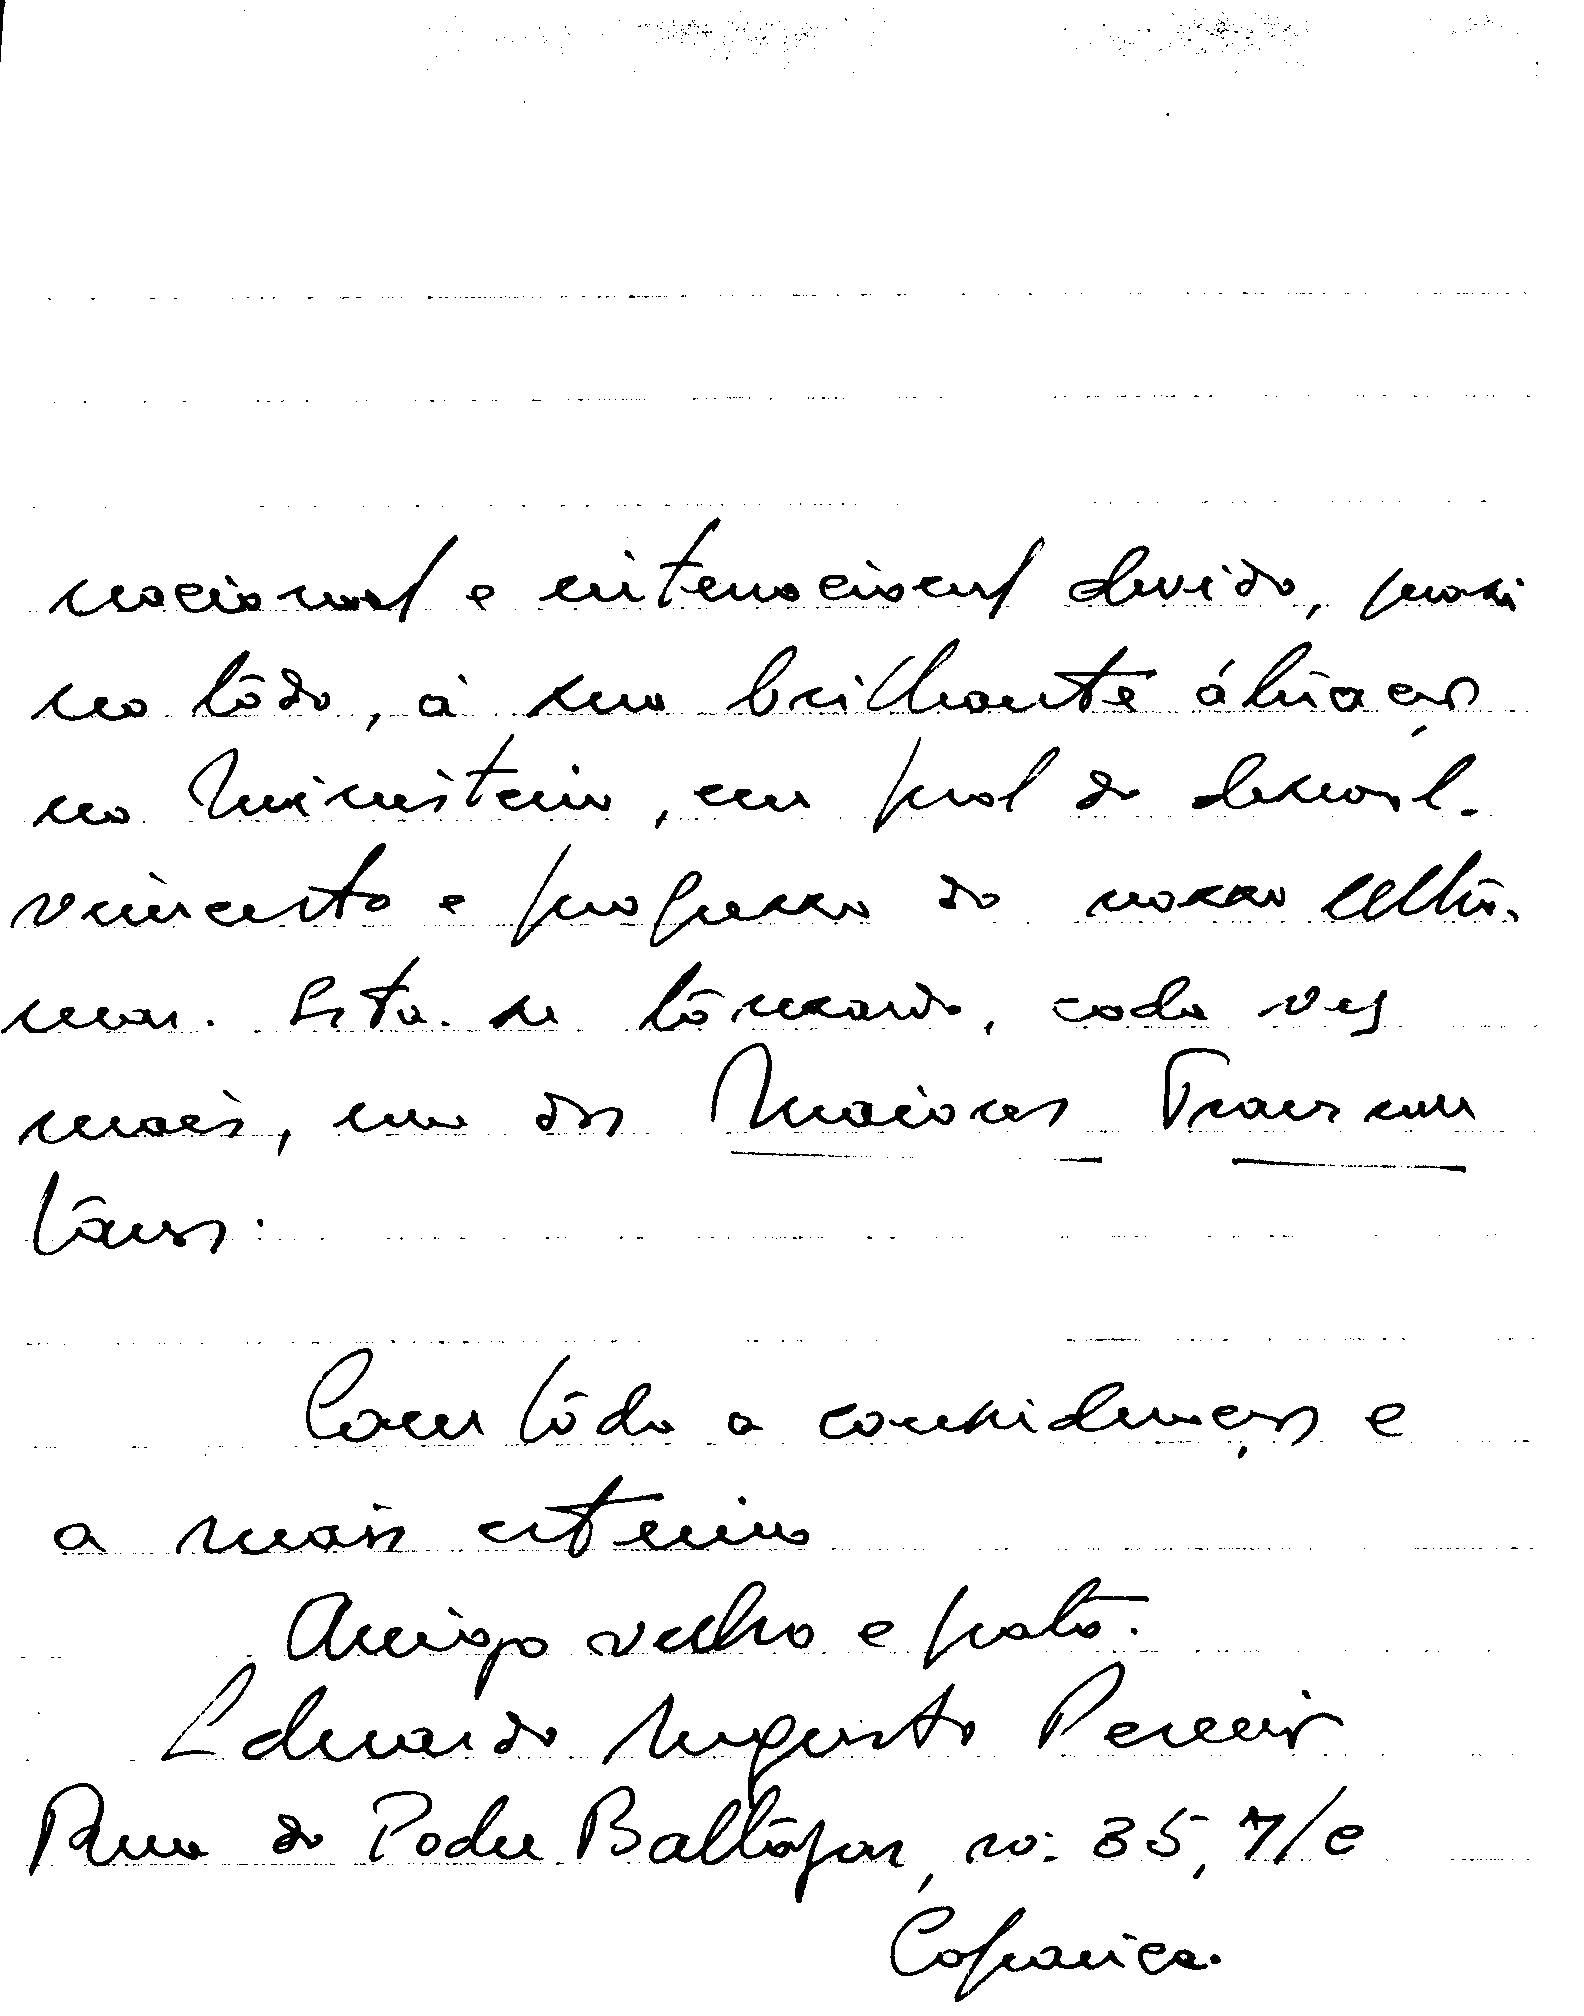 nacional e internacional devido, quasi
no tôdo, á sua brilhante átuação
no Ministerio, em prol do desenvol-
vimento e progresso do nosso Ultra-
mar. Está-se tôrnando, cada vez
mais, um dos Maiores Transmon
tânos.
Com tôda a consideração e
a mais estima
Amigo velho e grato.
Eduardo Augusto Pereira
Rua do Padre Baltazar, no: 35, 7/e
Caparica.